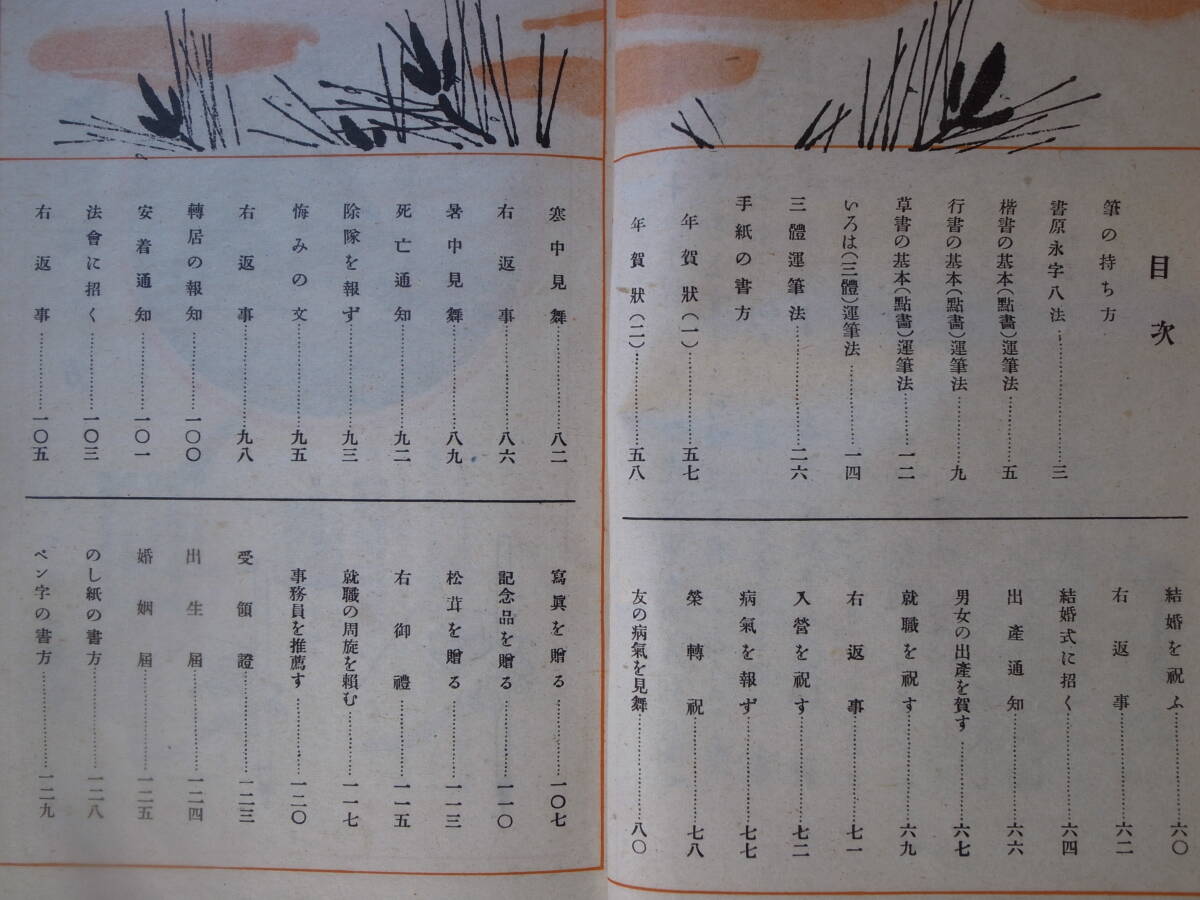 目次
筆の持ち方
書原永字八法……三
楷書の基本(點畫)運筆法……五
行書の基本(點畫)運筆法……九
草書の基本(點畫)運筆法……一二
いろは(三體)運筆法……一四
三體運筆法……二六
手紙の書方
年賀狀(一)……五七
年賀狀(二)……五八
結婚を祝ふ……六〇
右返事……六二
結婚式に招く……六四
出產通知……六六
男女の出產を賀す……六七
就職を祝す……六九
右返事……七一
入營を祝す……七二
病氣を報ず……七七
榮轉祝……七八
友の病氣を見舞……八〇
寒中見舞……八二
右返事……八六
暑中見舞……八九
死亡通知……九二
除隊を報ず……九三
悔みの文……九五
右返事……九八
轉居の報知……一〇〇
安着通知……一〇一
法會に招く……一〇三
右返事……一〇五
寫眞を贈る……一〇七
記念品を贈る……一一〇
松茸を贈る……一一三
右御禮……一一五
就職の周旋を賴む……一一七
事務員を推薦す……一二〇
受領證……一二三
出生屆……一二四
婚姻屆……一二五
のし紙の書方……一二八
ペン字の書方……一二九